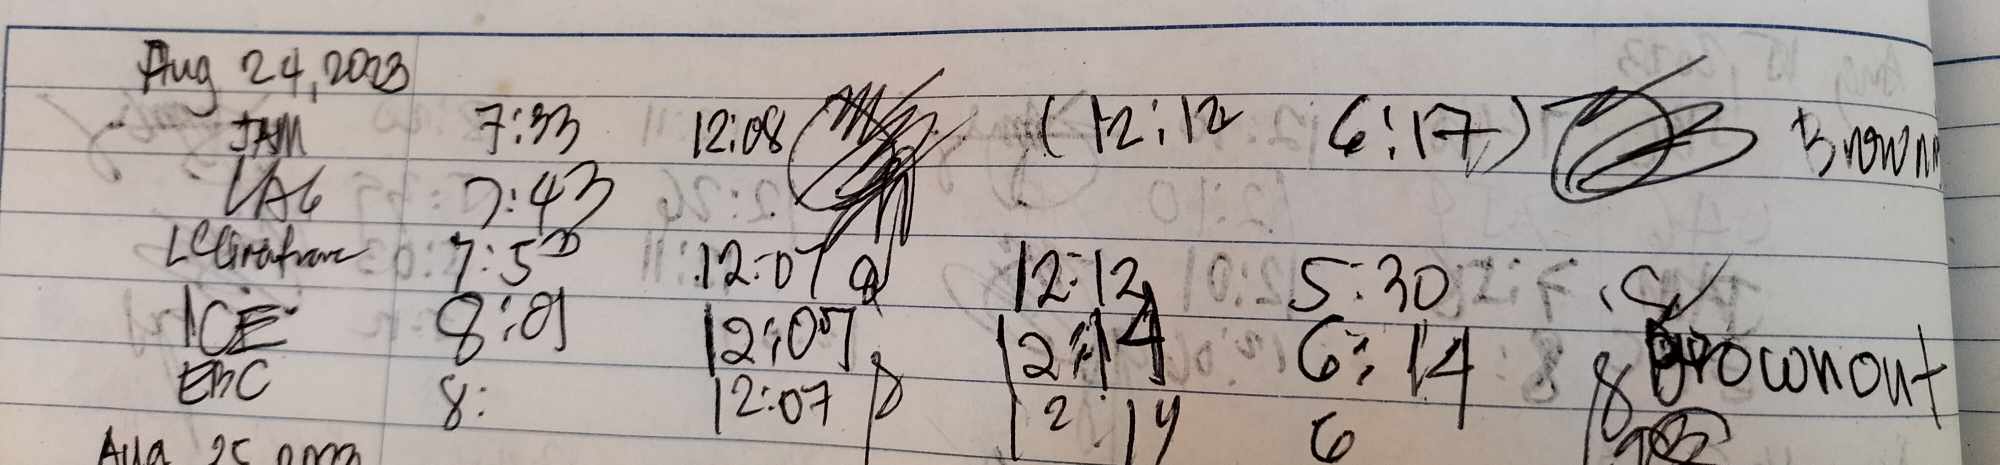 Aug 24, 2023
JAM 7:33 12:08 (12:12 6:17) Brown
LAG 7:43
7:50 12:07 12:12 5:30
ICE 8:01 12:07 12:14 6:14 Brownout
EBC 8: 12:07 12:14 6
Aug 25 2023